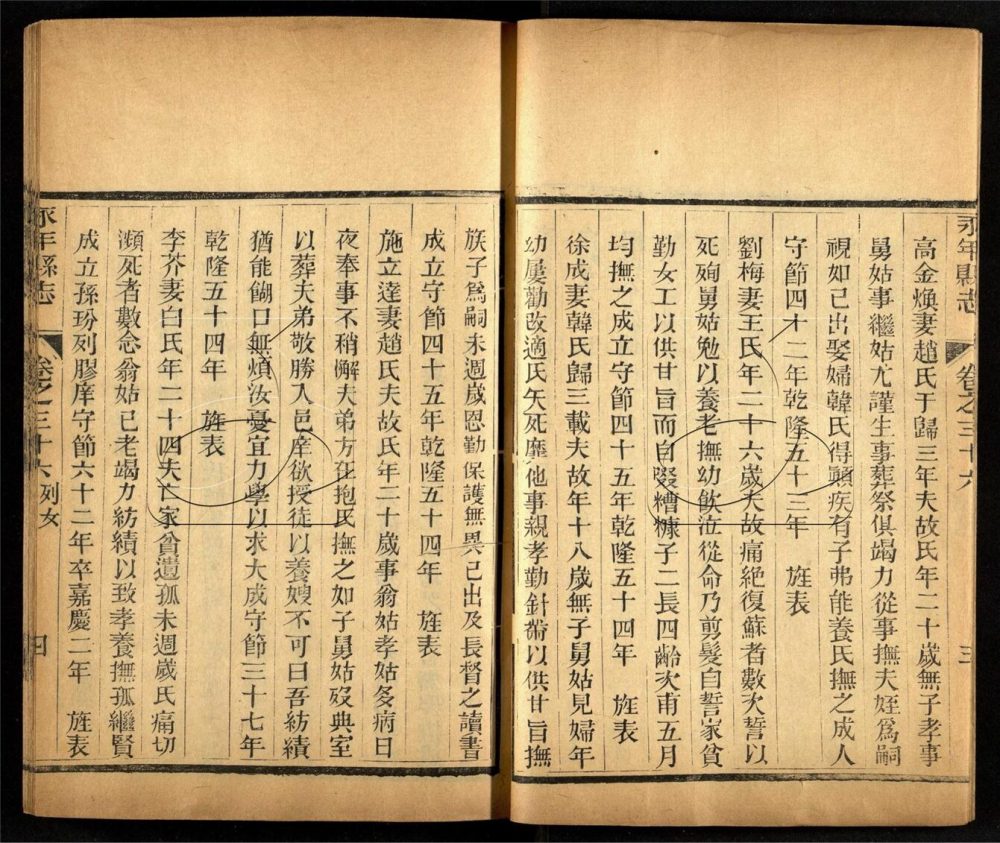 永年縣志
卷之三十六
三
高金煥妻趙氏于歸三年夫故氏年二十歲無子孝事
舅姑事繼姑尤謹生事葬祭俱竭力從事撫夫姪為嗣
視如己出娶婦韓氏得顚疾有子弗能養氏撫之成人
守節四十二年乾隆五十三年 旌表
劉梅妻王氏年二十六歲夫故痛絕復蘇者數次誓以
死殉舅姑勉以養老撫幼飲泣從命乃剪髮自誓家貧
勤女工以供甘旨而自啜糟糠子二長四齡次甫五月
均撫之成立守節四十五年乾隆五十四年 旌表
徐成妻韓氏歸三載夫故年十八歲無子舅姑見婦年
幼屢勸改適氏矢死靡他事親孝勤針黹以供甘旨撫
族子爲嗣未週歲恩勤保護無異己出及長督之讀書
成立守節四十五年乾隆五十四年 旌表
施立達妻趙氏夫故氏年二十歲事翁姑孝姑多病日
夜奉事不稍懈夫弟方在抱氏撫之如子舅姑歿典室
以葬夫弟敬勝入邑庠欲授徒以養嫂不可曰吾紡績
猶能餬口無煩汝憂宜力學以求大成守節三十七年
乾隆五十四年 旌表
李芥妻白氏年二十四夫亡家貧遺孤未週歲氏痛切
瀕死者數念翁姑已老竭力紡績以致孝養撫孤繼賢
成立孫玢列膠庠守節六十二年卒嘉慶二年 旌表
永年縣志
卷之三十六 列女
四